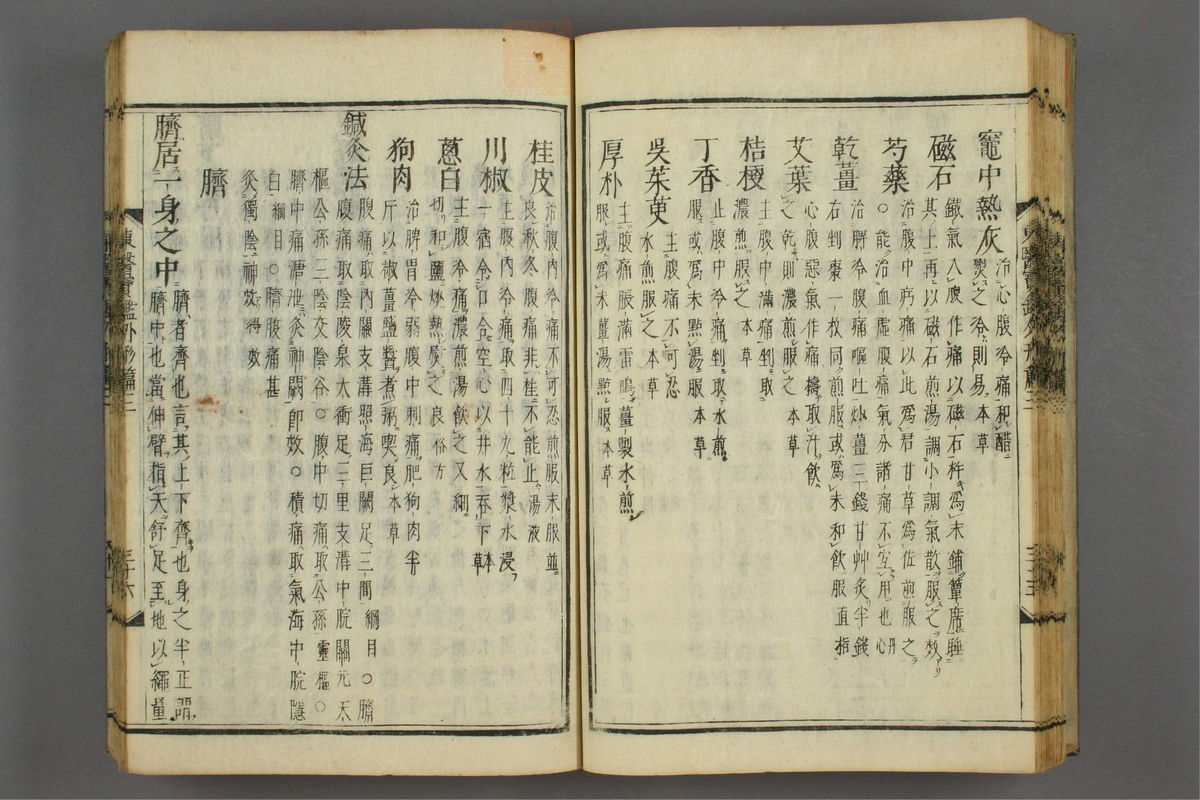 竈中熱灰 治心腹冷痛和醋
熨之冷則易 本草
磁石 鐵氣入腹作痛以磁石杵爲末鋪簟席睡
其上再以磁石煎湯調小調氣散服之效
芍藥 治腹中㽱痛以此爲君甘草爲佐煎服之
○能治血虛腹痛氣分諸痛不宜用也 丹心
乾薑 治脾冷腹痛嘔吐炒薑三錢甘艸炙半錢
右剉棗一枚同煎服或爲末和飲服 直指
艾葉 心腹惡氣作痛擣取汁飮
之乾則濃煎服之 本草
桔梗 主腹中滿痛剉取
濃煎服之 本草
丁香 止腹中冷痛剉取水煎
服或爲末點湯服 本草
吳茱萸 主腹痛不可忍
水煎服之 本草
厚朴 主腹痛滿雷鳴薑製水煎
服或爲末薑湯點服 本草
桂皮 治腹內冷痛不可忍煎服末服並
良秋冬腹痛非桂不能止 湯液
川椒 主腹內冷痛取四十九粒漿水浸
一宿令口合空心以井水呑下 本草
葱白 主腹冷痛濃煎湯飮之又細
切和鹽炒熱熨之良 俗方
狗肉 治脾胃冷弱腹中刺痛肥狗肉半
斤以椒薑鹽醬煮粥喫良 本草
鍼灸法 腹痛取內關支溝照海巨闕足三間 綱目 ○臍
腹痛取陰陵泉太衝足三里支溝中脘關元天
樞公孫三陰交陰谷○腹中切痛取公孫 靈樞 ○
臍中痛溏泄灸神闕卽效○積痛取氣海中脘隱
白 綱目 ○臍腹痛甚
灸獨陰神效 得效
臍
臍居一身之中 臍者齊也言其上下齊也身之半正謂
臍中也當伸臂指天舒足至地以繩量
東醫寶鑑外形篇三 三十六